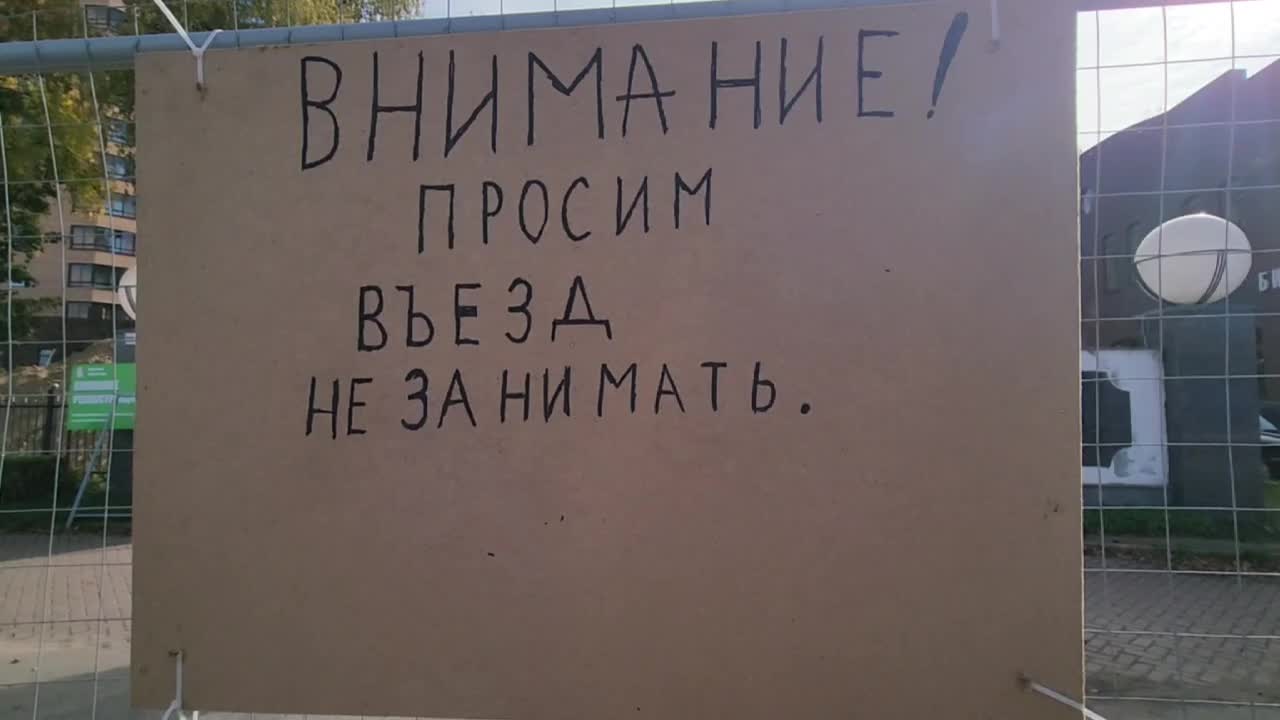 ВНИМАНИЕ!
ПРОСИМ
ВЪЕЗД
НЕ ЗАНИМАТЬ.